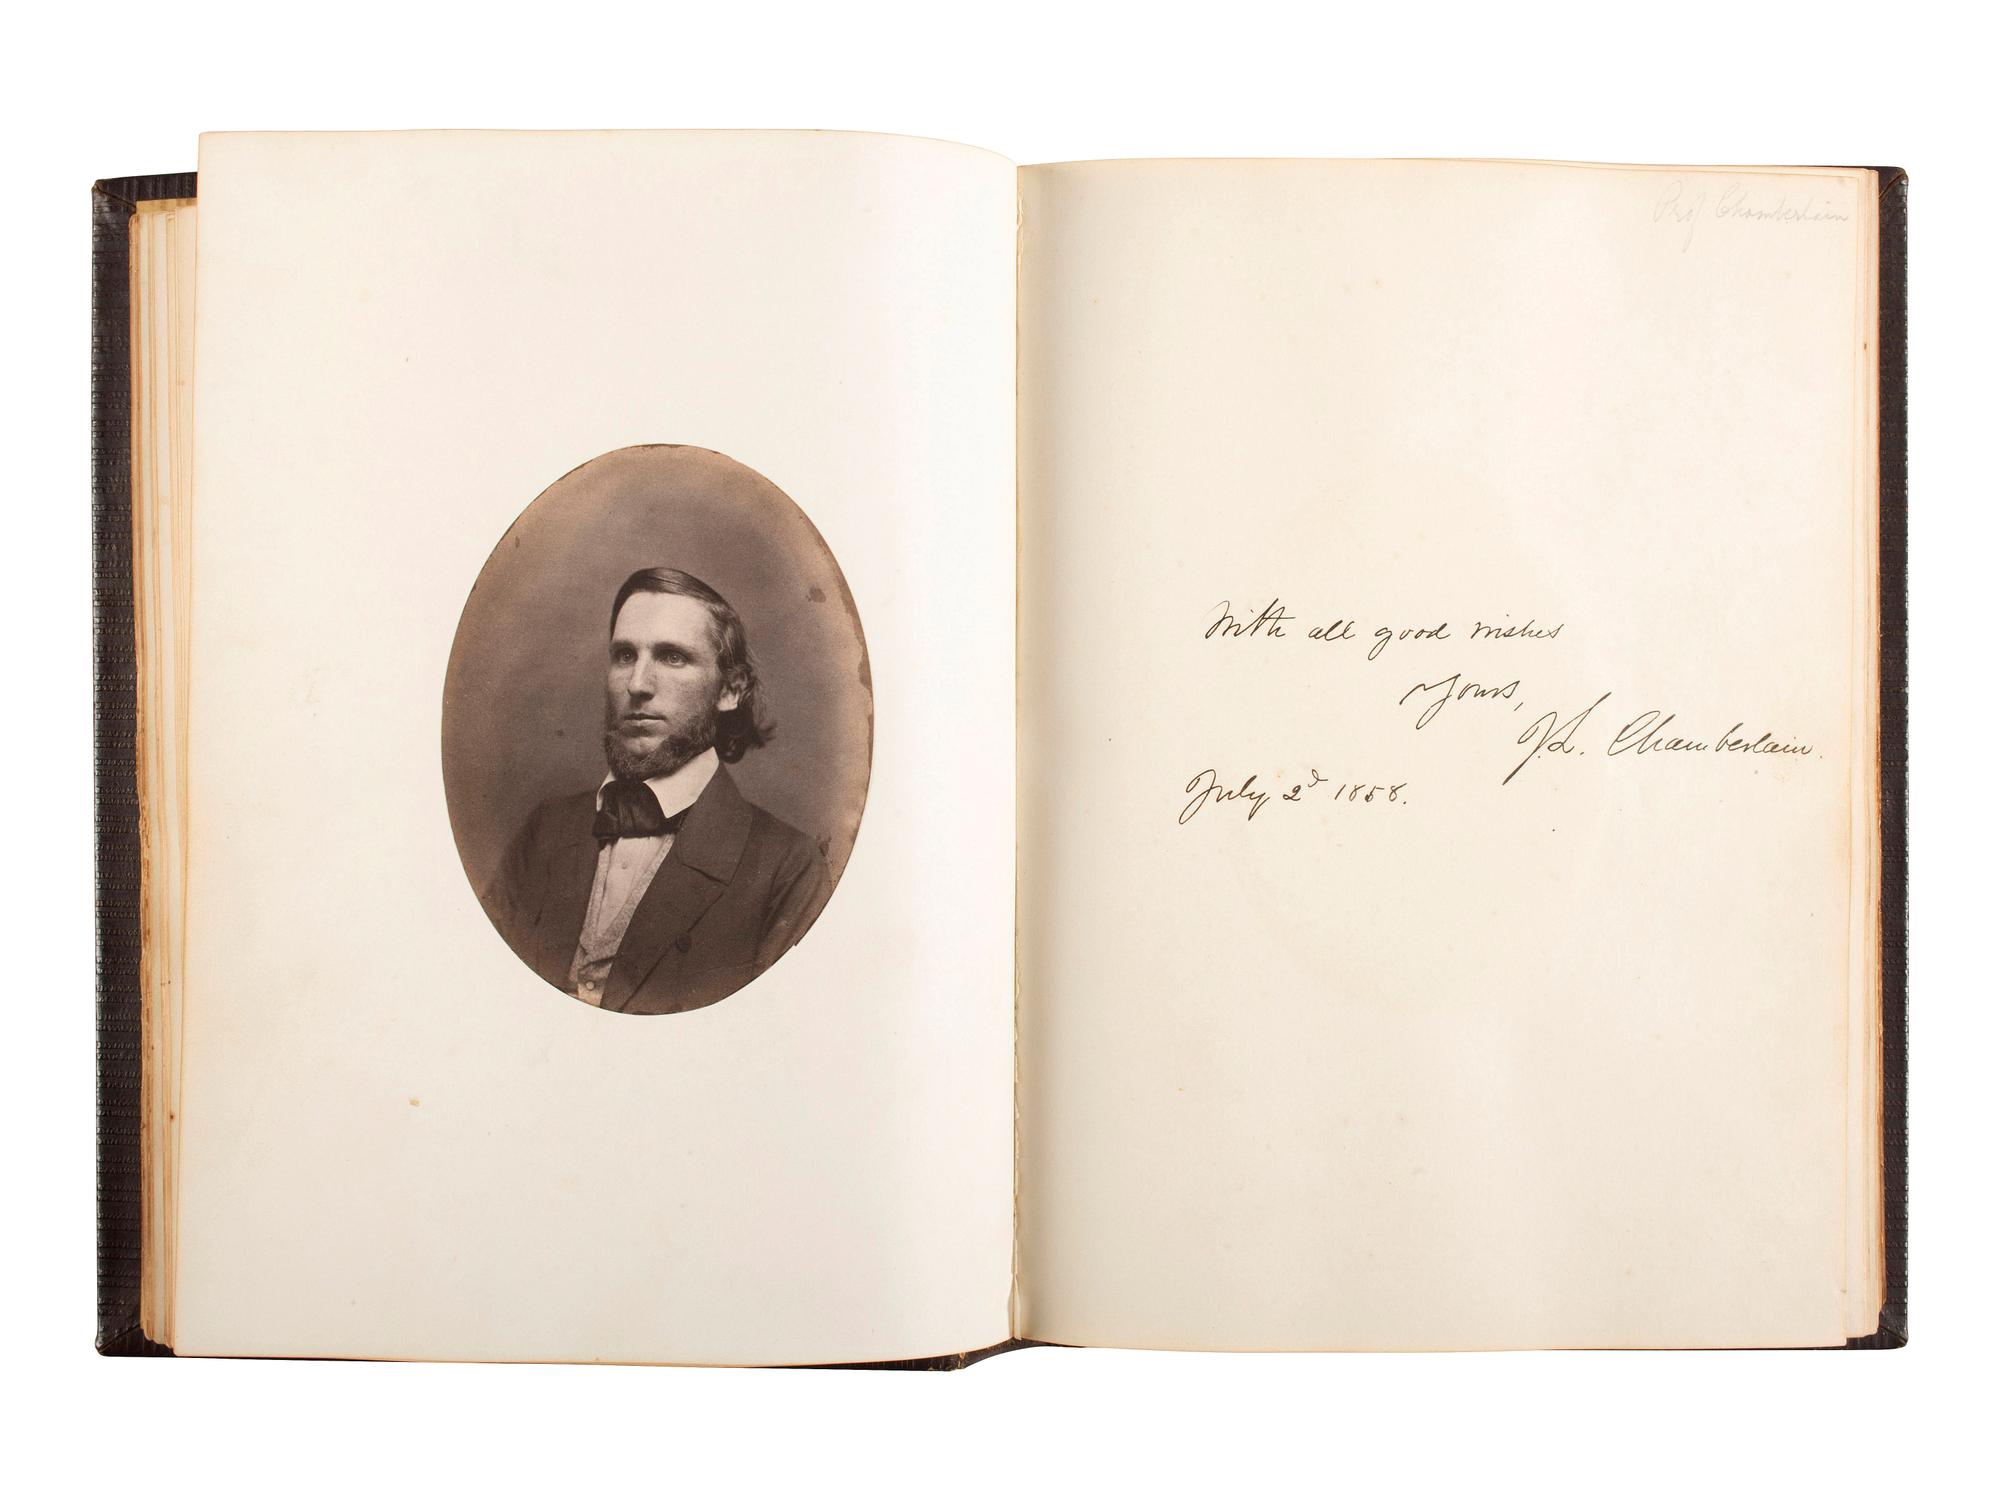 Prof Chamberlain
With all good wishes
Yours,
J.L. Chamberlain.
July 2d 1858.